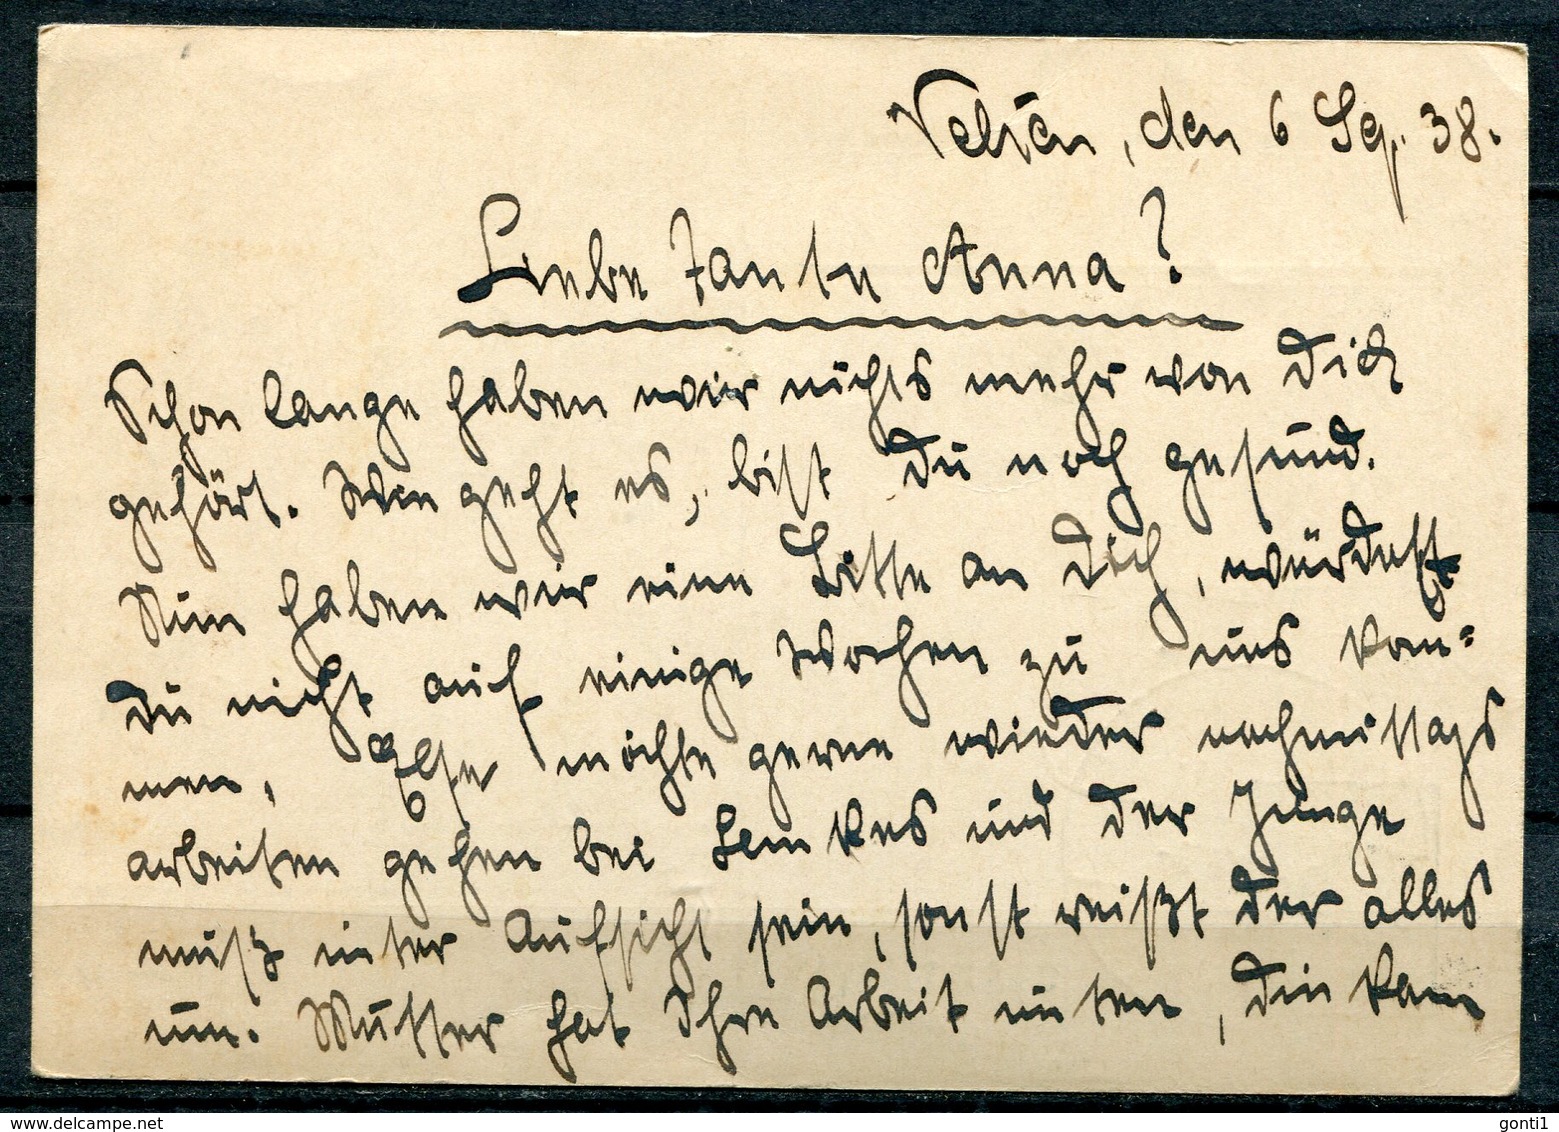 den 6 Sep. 38.
Liebe Tante Anna?
Schon lange haben wir nichts mehr von Dich
gehört. Wie geht es, bist Du noch gesund.
Nun haben wir eine Bitte an Dich, würdest
Du nicht auf einige Wochen zu uns kom=
men, Else möchte gerne wieder nachmittags
arbeiten gehen bei Lemkes und der Junge
muß unter Aufsicht sein, sonst reißt der alles
um. Mutter hat Ihre Arbeit unten, die kann
www.delcampe.net
gonti1